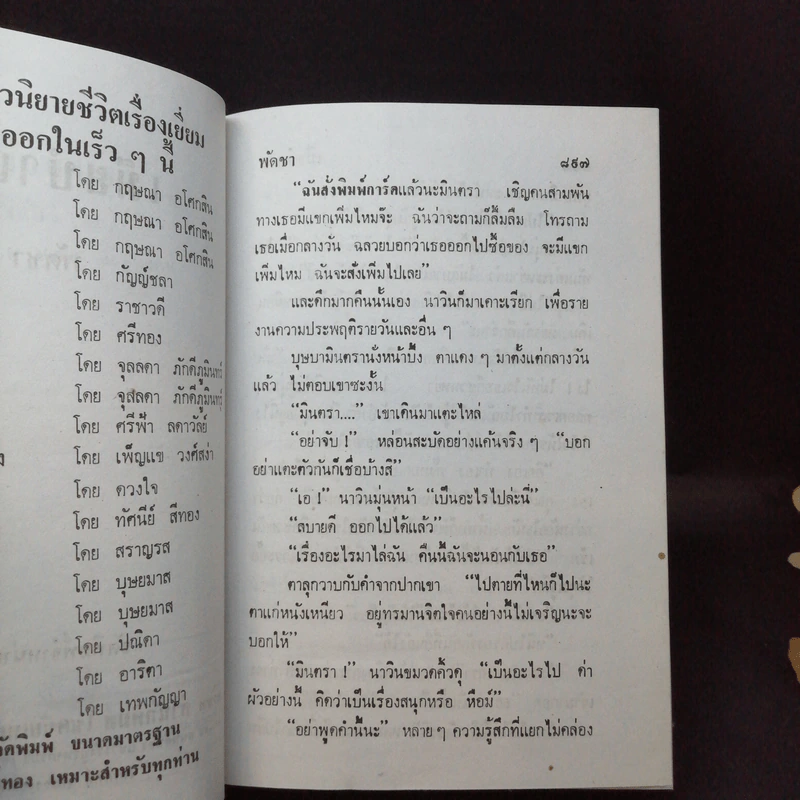 วนิยายชีวิตเรื่องเยี่ยม
ออกในเร็ว ๆ นี้
โดย กฤษณา อโศกสิน
โดย กฤษณา อโศกสิน
โดย กฤษณา อโศกสิน
โดย กัญญ์ชลา
โดย ราชาวดี
โดย ศรีทอง
โดย จุลลดา ภักดีภูมินทร์
โดย จุลลดา ภักดีภูมินทร์
โดย ศรีฟ้า ลดาวัลย์
โดย เพ็ญแข วงศ์สง่า
โดย ดวงใจ
โดย ทัศนีย์ สีทอง
โดย สราญรส
โดย บุษยมาส
โดย บุษยมาส
โดย ปณิตา
โดย อาริตา
โดย เทพกัญญา
จัดพิมพ์ ขนาดมาตรฐาน
ทอง เหมาะสำหรับทุกท่าน
พัดชา ๘๙๗
“ฉันสั่งพิมพ์การ์ดแล้วนะมินตรา เชิญคนสามพัน
ทางเธอมีแขกเพิ่มไหมจ๊ะ ฉันว่าจะถามก็ลืมลืม โทรถาม
เธอเมื่อกลางวัน ฉลวยบอกว่าเธอออกไปซื้อของ จะมีแขก
เพิ่มไหม ฉันจะสั่งเพิ่มไปเลย”
และดึกมากคืนนั้นเอง นาวินก็มาเคาะเรียก เพื่อราย
งานความประพฤติรายวันและอื่น ๆ
บุษบามินตรานั่งหน้าบึ้ง ตาแดง ๆ มาตั้งแต่กลางวัน
แล้ว ไม่ตอบเขาซะงั้น
“มินตรา....” เขาเดินมาแตะไหล่
“อย่าจับ !” หล่อนสะบัดอย่างแค้นจริง ๆ “บอก
อย่าแตะตัวกันก็เชื่อบ้างสิ”
“เอ !” นาวินมุ่นหน้า “เป็นอะไรไปล่ะนี่”
“สบายดี ออกไปได้แล้ว”
“เรื่องอะไรมาไล่ฉัน คืนนี้ฉันจะนอนกับเธอ”
ตาลุกวาบกับคำจากปากเขา “ไปตายที่ไหนก็ไปนะ
ตาแก่หนังเหนียว อยู่ทรมานจิตใจคนอย่างนี้ไม่เจริญนะจะ
บอกให้”
“มินตรา !” นาวินขมวดคิ้วดุ “เป็นอะไรไป ด่า
ผัวอย่างนี้ คิดว่าเป็นเรื่องสนุกหรือ หือม์”
“อย่าพูดคำนี้นะ” หลายๆ ความรู้สึกที่แยกไม่คล่อง